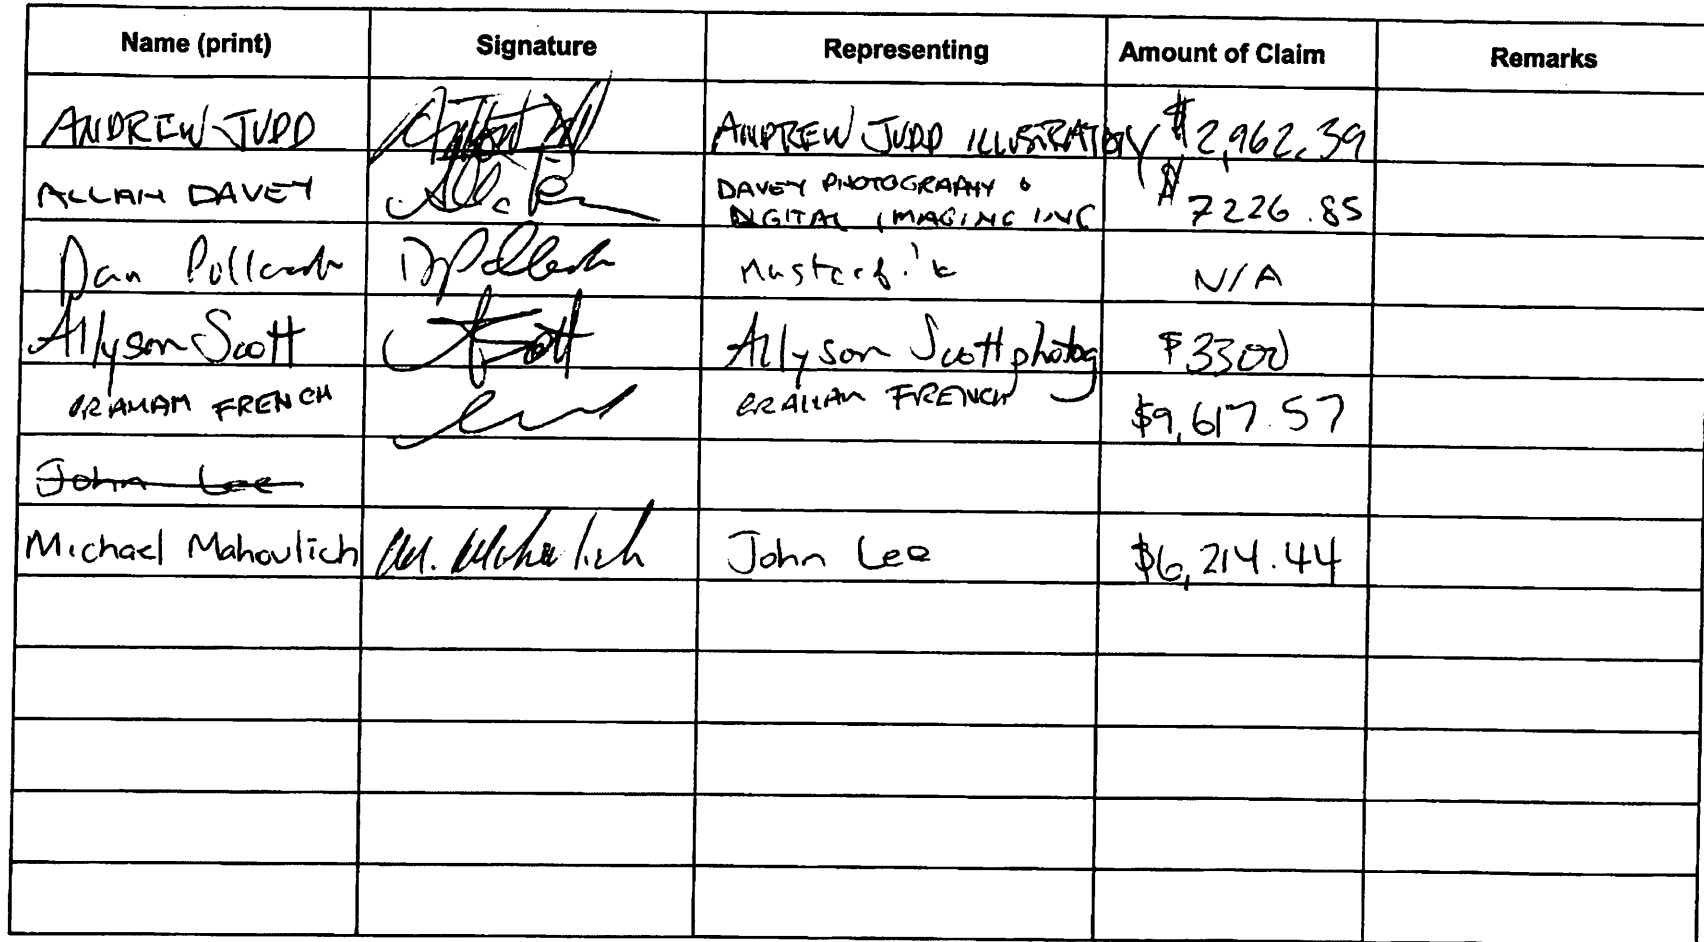 Name (print) Signature Representing Amount of Claim Remarks
ANDREW JUDD ANDREW JUDD ILLUSTRATION $2,962.39
ALLAN DAVEY DAVEY PHOTOGRAPHY & DIGITAL IMAGING INC $7226.85
Dan Pollack D Pollack N/A
Allyson Scott A Scott Allyson Scott photog $3300
GRAHAM FRENCH GRAHAM FRENCH $9,617.57
John Lee
Michael Mahovlich M. Mahovlich John Lee $6,214.44